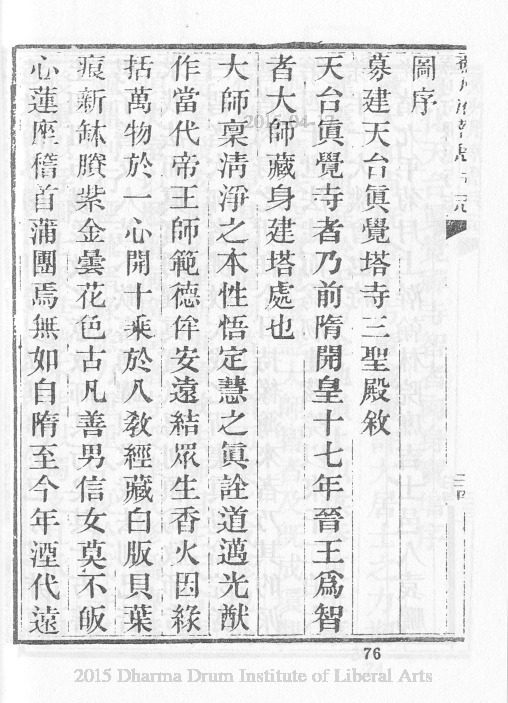 圖序
募建天台眞覺塔寺三聖殿敘
天台眞覺寺者乃前隋開皇十七年晉王爲智
者大師藏身建塔處也
大師稟淸淨之本性悟定慧之眞詮道邁光猷
作當代帝王師範德侔安遠結眾生香火因緣
括萬物於一心開十乘於八敎經藏白版貝葉
痕新缽賸紫金曇花色古凡善男信女莫不皈
心蓮座稽首蒲團焉無如自隋至今年湮代遠
76
2015 Dharma Drum Institute of Liberal Arts